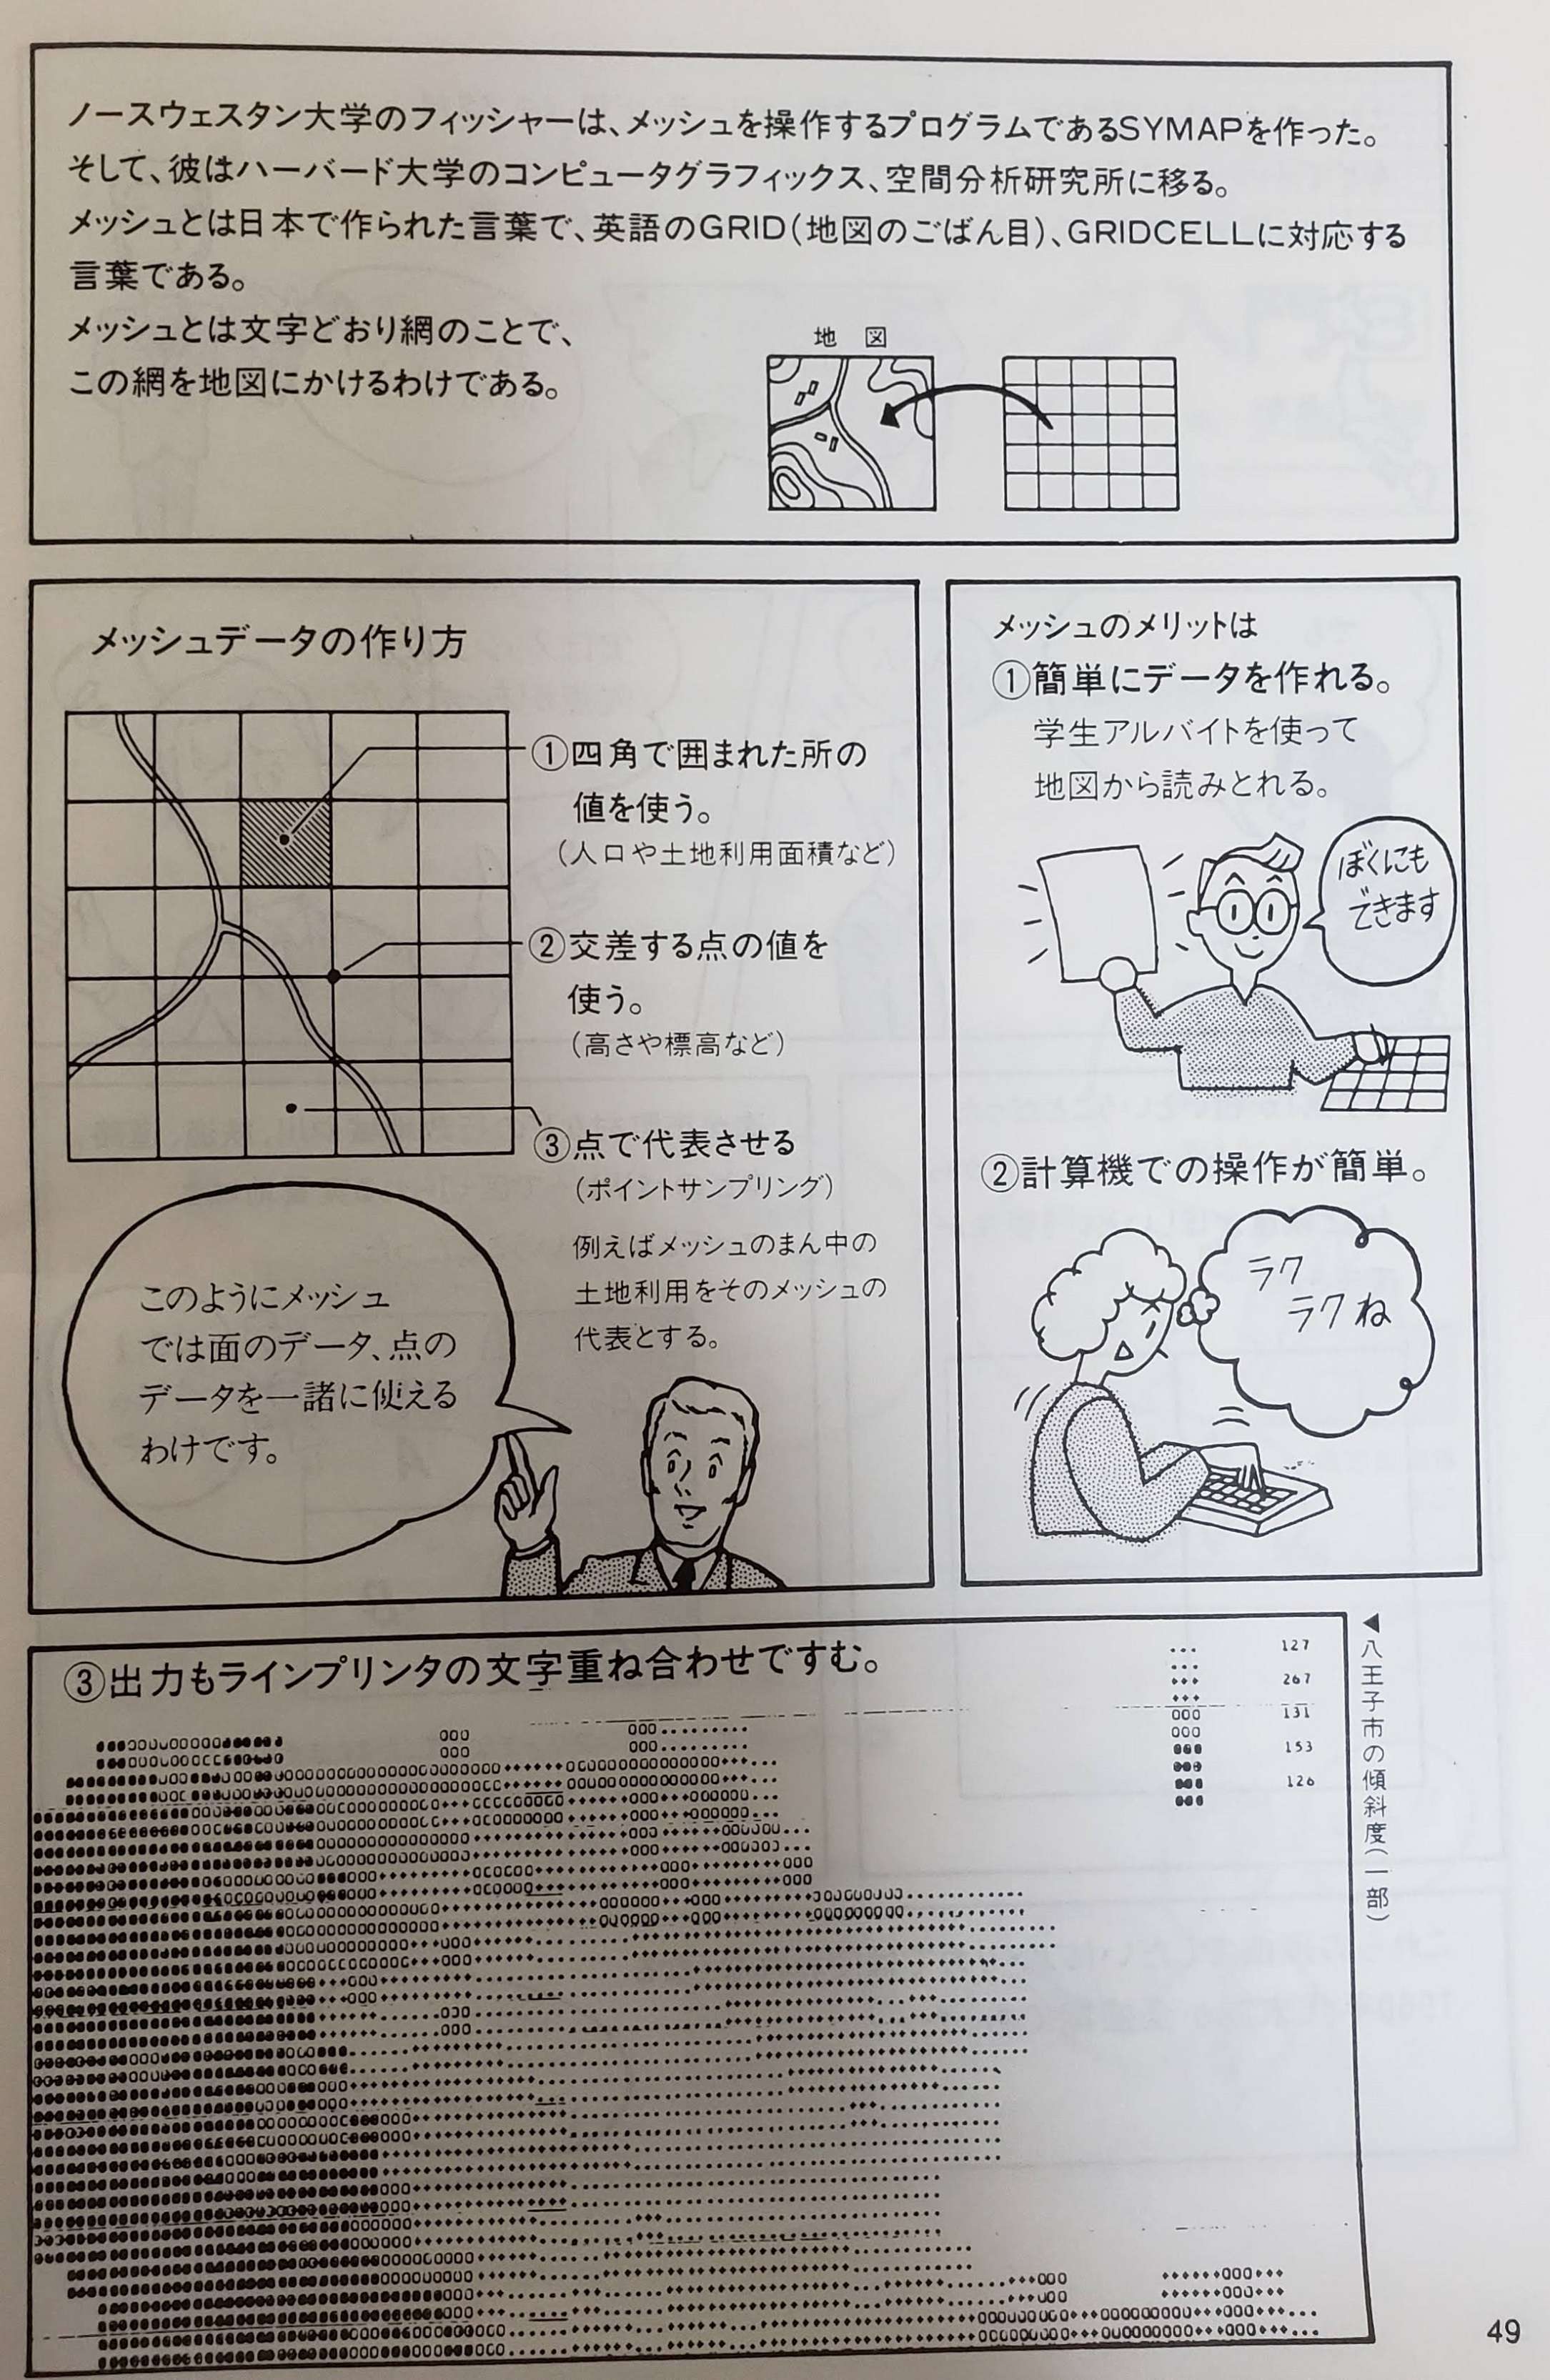 ノースウェスタン大学のフィッシャーは、メッシュを操作するプログラムであるSYMAPを作った。
そして、彼はハーバード大学のコンピュータグラフィックス、空間分析研究所に移る。
メッシュとは日本で作られた言葉で、英語のGRID(地図のごばん目)、GRIDCELLに対応する
言葉である。
メッシュとは文字どおり網のことで、
この網を地図にかけるわけである。
地 図
メッシュデータの作り方
①四角で囲まれた所の
値を使う。
(人口や土地利用面積など)
②交差する点の値を
使う。
(高さや標高など)
③点で代表させる
(ポイントサンプリング)
例えばメッシュのまん中の
土地利用をそのメッシュの
代表とする。
このようにメッシュ
では面のデータ、点の
データを一諸に使える
わけです。
メッシュのメリットは
①簡単にデータを作れる。
学生アルバイトを使って
地図から読みとれる。
ぼくにも
できます
②計算機での操作が簡単。
ラク
ラクね
③出力もラインプリンタの文字重ね合わせですむ。
127
267
131
153
126
◀八王子市の傾斜度(一部)
49